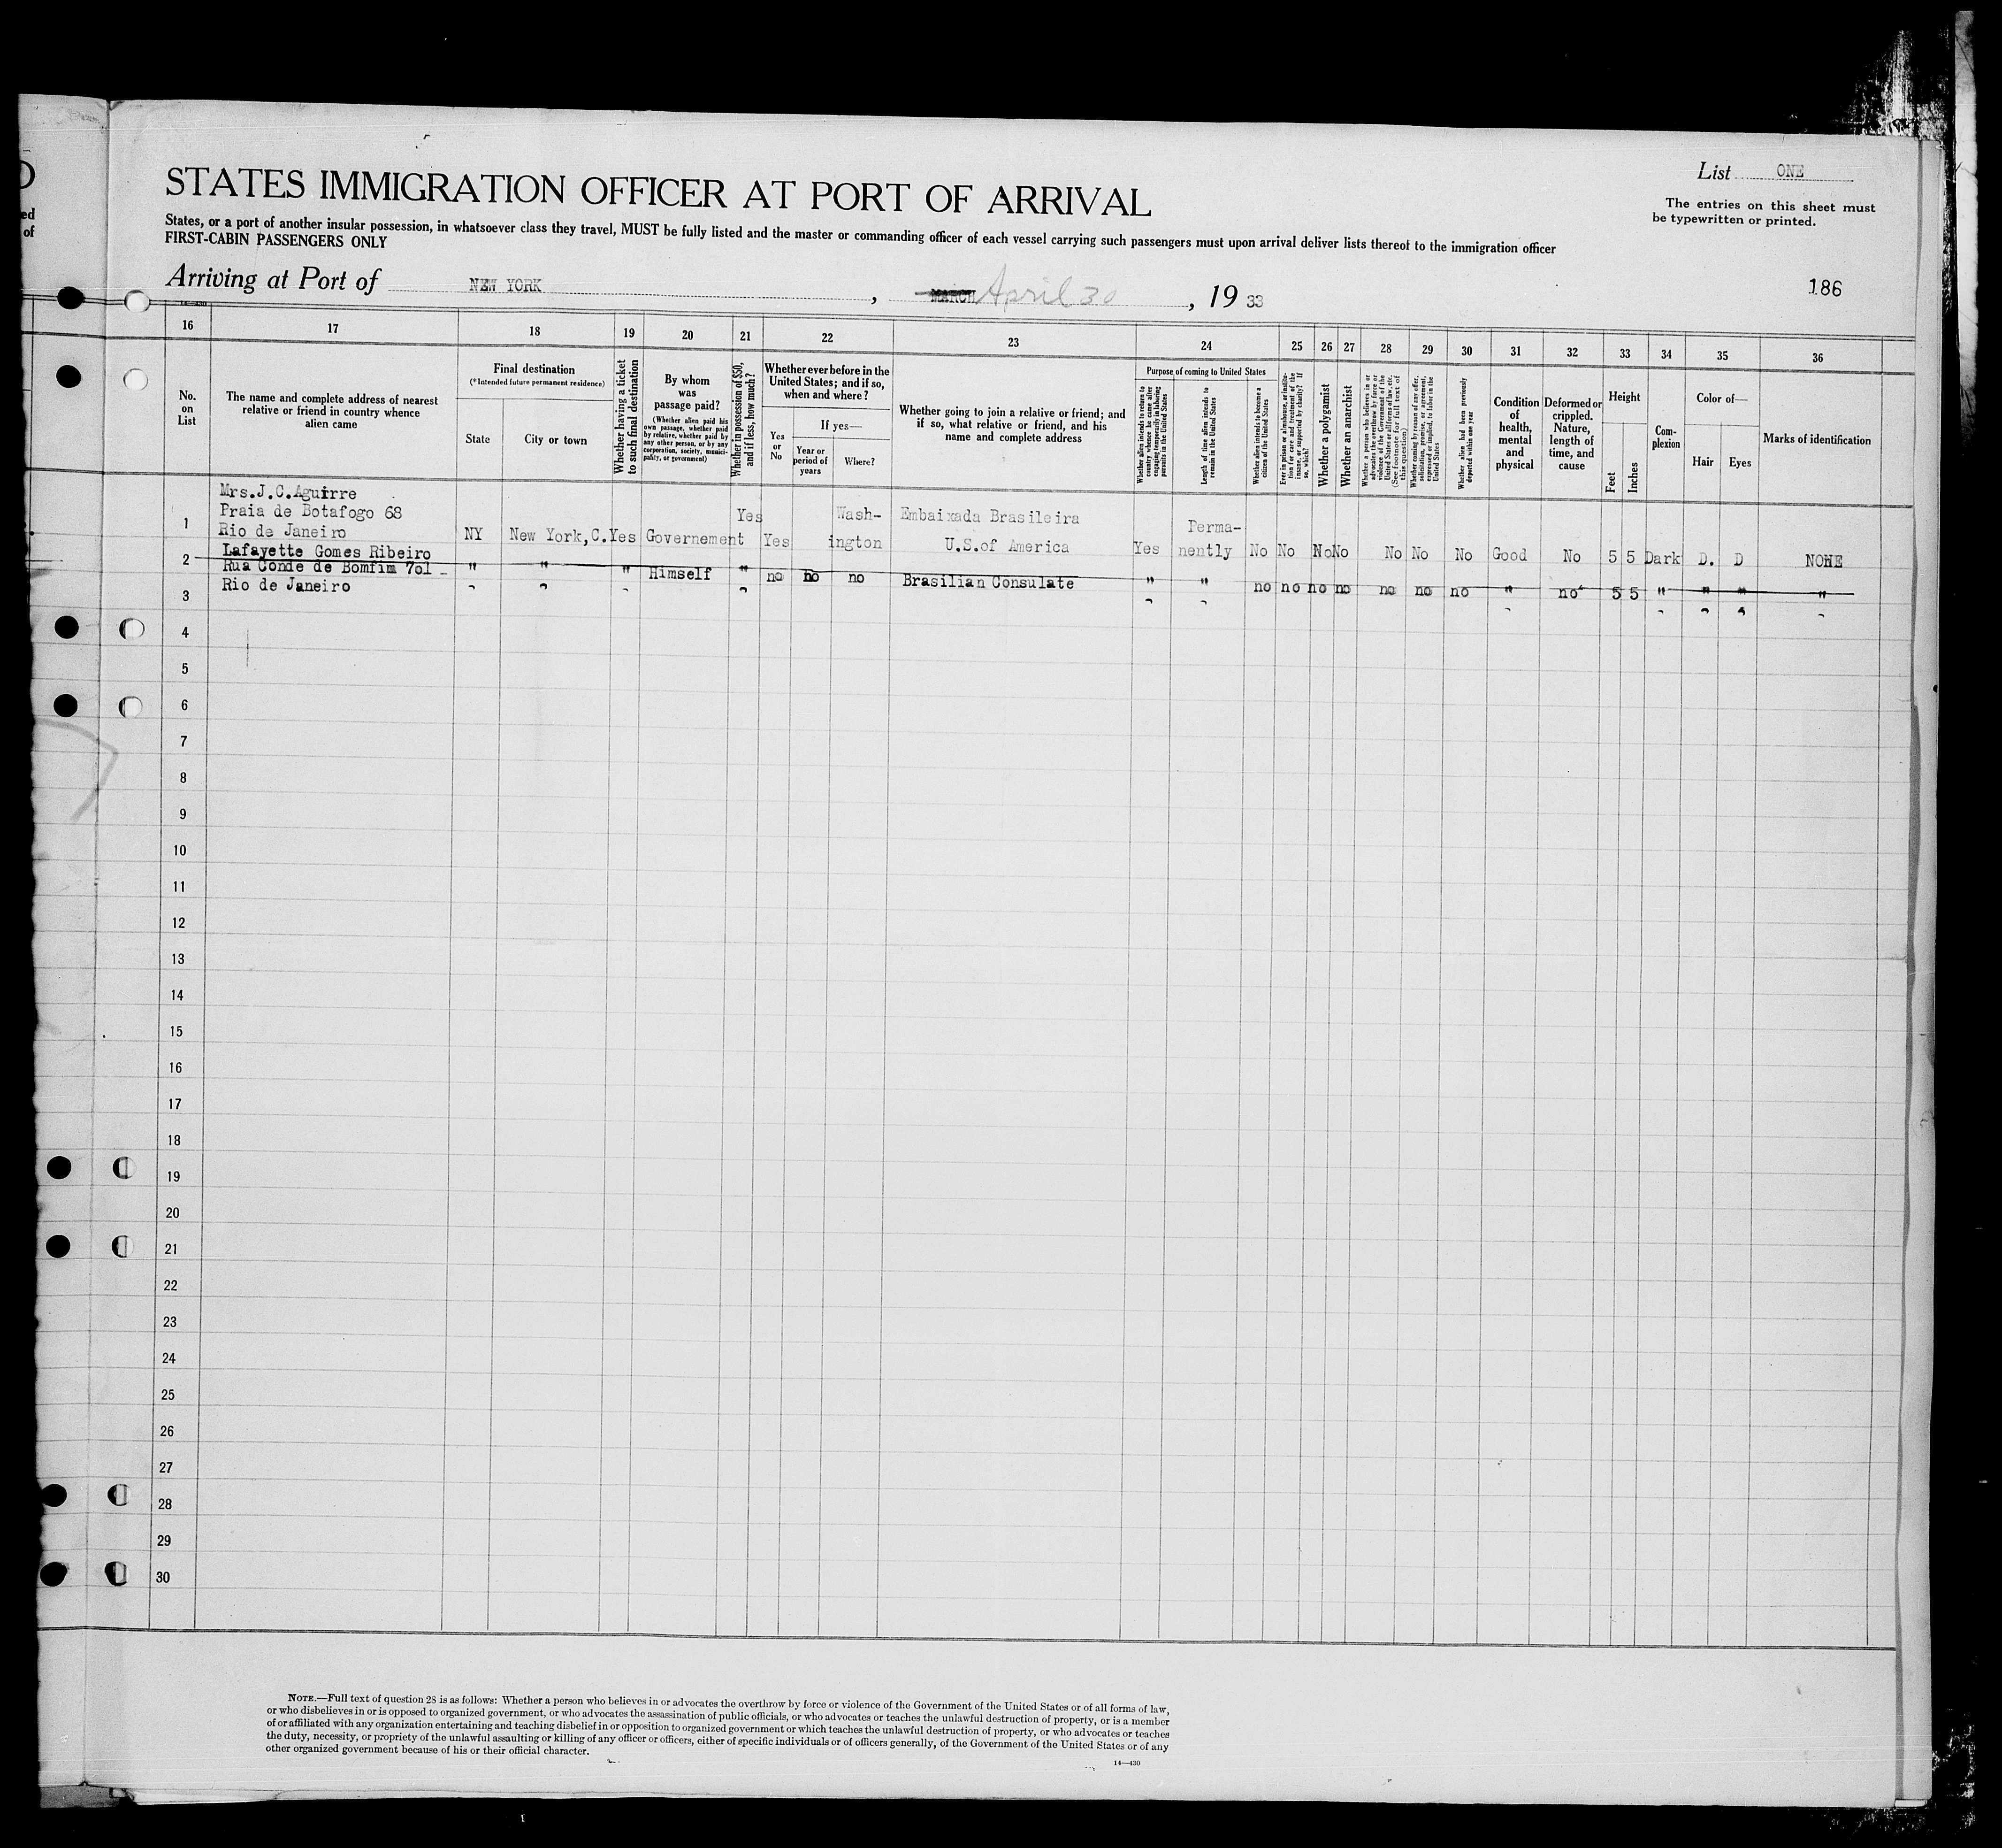 List ONE
STATES IMMIGRATION OFFICER AT PORT OF ARRIVAL
The entries on this sheet must
be typewritten or printed.
States, or a port of another insular possession, in whatsoever class they travel, MUST be fully listed and the master or commanding officer of each vessel carrying such passengers must upon arrival deliver lists thereof to the immigration officer
FIRST-CABIN PASSENGERS ONLY
ed
of
Arriving at Port of NEW YORK, MARCH April 30, 19 33
186
16 17 18 19 20 21 22 23 24 25 26 27 28 29 30 31 32 33 34 35 36
No.
on
List
The name and complete address of nearest
relative or friend in country whence
alien came
Final destination
(*Intended future permanent residence)
State
City or town
Whether having a ticket
to such final destination
By whom
was
passage paid?
(Whether alien paid his
own passage, whether paid
by relative, whether paid by
any other person, or by any
corporation, society, munici-
pality, or government)
Whether in possession of $50,
and if less, how much?
Whether ever before in the
United States; and if so,
when and where?
Yes
or
No
If yes—
Year or
period of
years
Where?
Whether going to join a relative or friend; and
if so, what relative or friend, and his
name and complete address
Purpose of coming to United States
Whether alien intends to return to
country whence he came after
engaging temporarily in laboring
pursuits in the United States
Length of time alien intends to
remain in the United States
Whether alien intends to become a
citizen of the United States
Ever in prison or almshouse, or institu-
tion for care and treatment of the
insane, or supported by charity? If
so, which?
Whether a polygamist
Whether an anarchist
Whether a person who believes in or
advocates the overthrow by force or
violence of the Government of the
United States or all forms of law, etc.
(See footnote for full text of
this question)
Whether coming by reason of any offer,
solicitation, promise, or agreement,
expressed or implied, to labor in the
United States
Whether alien had been previously
deported within one year
Condition
of
health,
mental
and
physical
Deformed or
crippled.
Nature,
length of
time, and
cause
Height
Feet
Inches
Com-
plexion
Color of—
Hair
Eyes
Marks of identification
Mrs.J.C.Aguirre
Praia de Botafogo 68 Yes Wash- Embaixada Brasileira Perma-
1 Rio de Janeiro NY New York,C. Yes Governement Yes ington U.S.of America Yes nently No No No No No No No Good No 5 5 Dark D. D NONE
Lafayette Gomes Ribeiro
2 Rua Conde de Bomfim 7ol " " " Himself " no no no Brasilian Consulate " " no no no no no no no " no 5 5 " " " "
3 Rio de Janeiro
4
5
6
7
8
9
10
11
12
13
14
15
16
17
18
19
20
21
22
23
24
25
26
27
28
29
30
NOTE.—Full text of question 28 is as follows: Whether a person who believes in or advocates the overthrow by force or violence of the Government of the United States or of all forms of law,
or who disbelieves in or is opposed to organized government, or who advocates the assassination of public officials, or who advocates or teaches the unlawful destruction of property, or is a member
of or affiliated with any organization entertaining and teaching disbelief in or opposition to organized government or which teaches the unlawful destruction of property, or who advocates or teaches
the duty, necessity, or propriety of the unlawful assaulting or killing of any officer or officers, either of specific individuals or of officers generally, of the Government of the United States or of any
other organized government because of his or their official character.
14—430